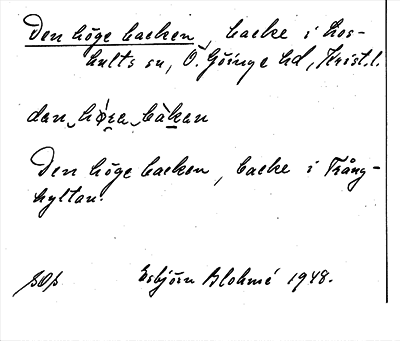 Den höge backen, backe i Los-
hults sn, Ö. Göinge hd, Krist. l.
dan hø̀ra bàkan
Den höge backen, backe i Trång-
hyltan.
Esbjörn Blohmé 1948.